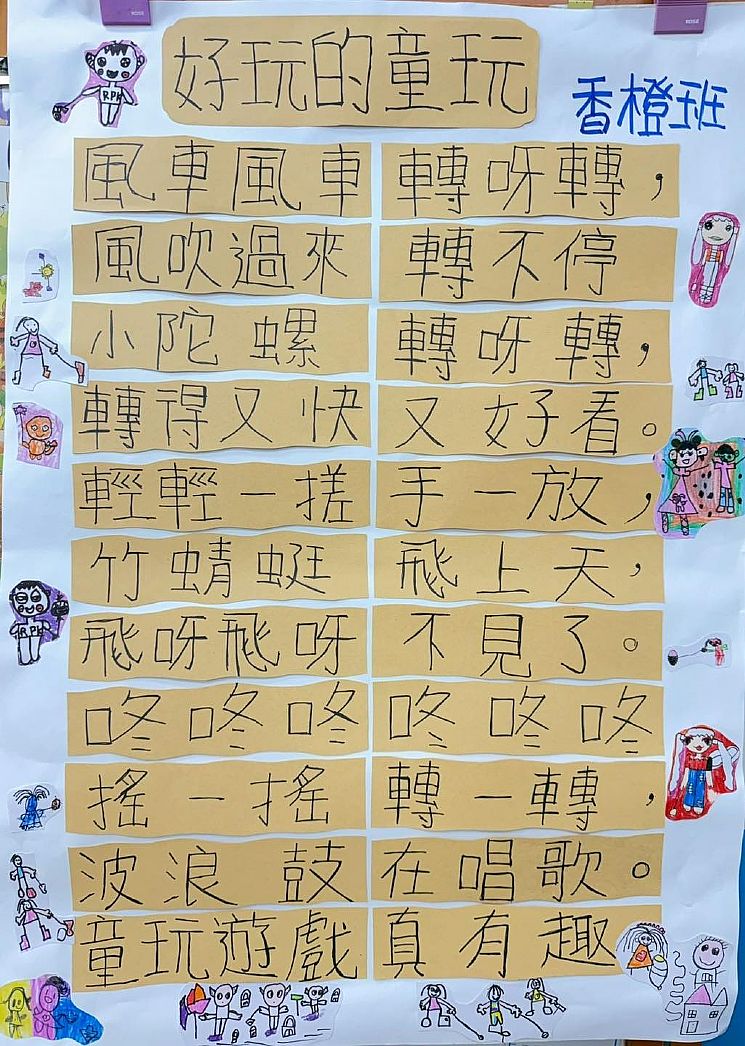 好玩的童玩
香橙班
風車風車 轉呀轉，
風吹過來 轉不停
小陀螺 轉呀轉，
轉得又快 又好看。
輕輕一搓 手一放，
竹蜻蜓 飛上天，
飛呀飛呀 不見了。
咚咚咚 咚咚咚
搖一搖 轉一轉，
波浪鼓 在唱歌。
童玩遊戲 真有趣
RPK
RPK